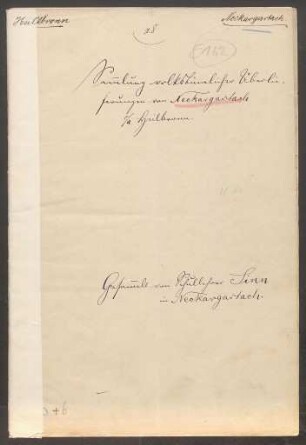 Heilbronn
Neckargartach
28
Sammlung volkstümlicher Überlie-
ferungen von Neckargartach
O/A Heilbronn.
Gesammelt von Schullehrer Sinn
in Neckargartach.